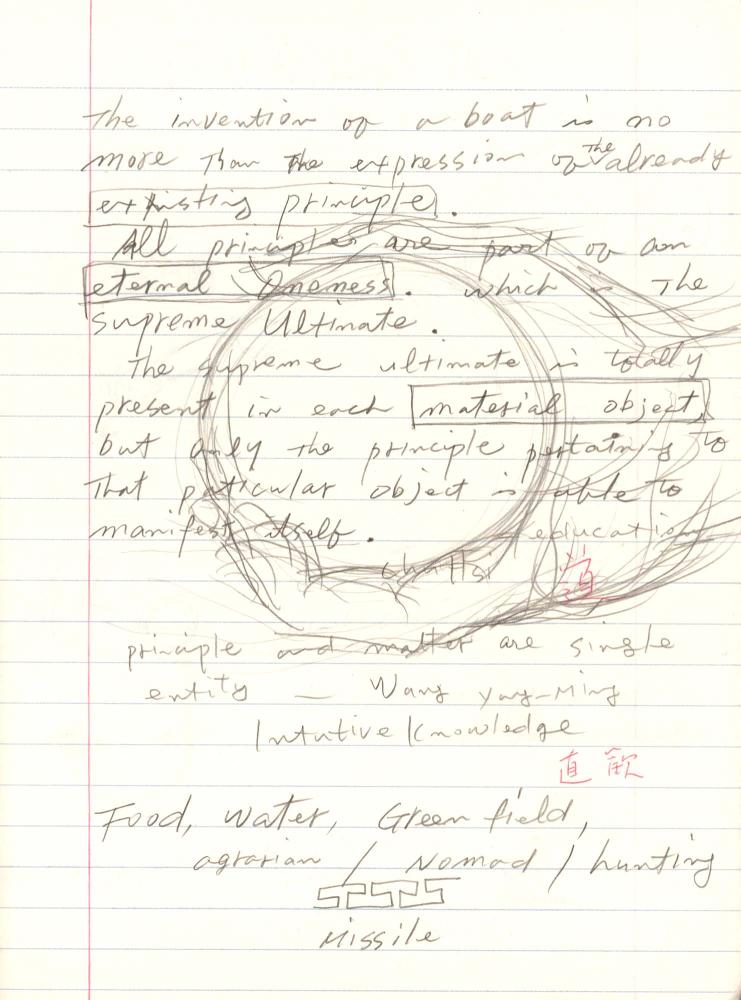 The invention of a boat is no
more Than The expression of The already
existing principle.
All principles are part of an
eternal Oneness. which is The
supreme Ultimate.
The supreme ultimate is totally
present in each material object,
but only the principle pertaining to
That paticular object is able to
manifest itself.
education
道
principle and matter are single
entity — Wang yang-Ming
Intutive Knowledge
直
Food, water, Green field,
agrarian / Nomad / hunting
Missile